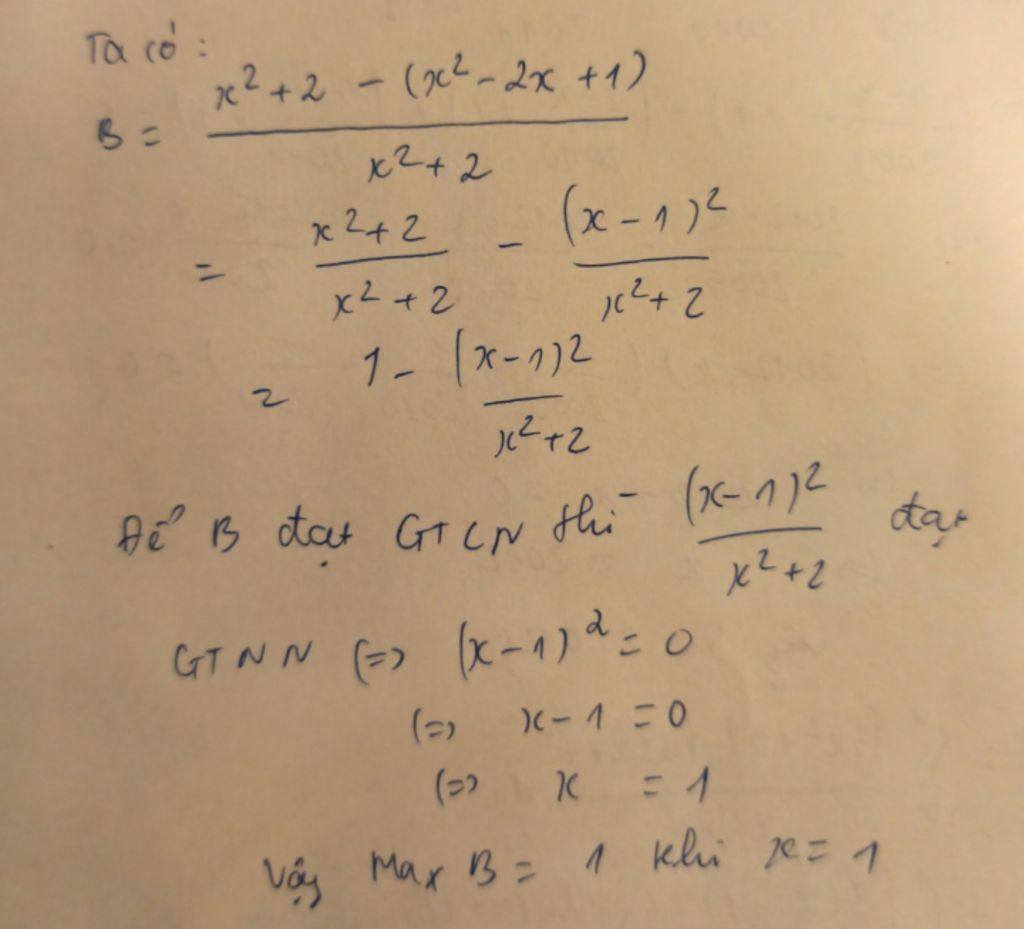 Ta có :
B = \frac{x^2 + 2 - (x^2 - 2x + 1)}{x^2 + 2}
= \frac{x^2 + 2}{x^2 + 2} - \frac{(x - 1)^2}{x^2 + 2}
= 1 - \frac{(x - 1)^2}{x^2 + 2}
Để B đạt GTLN thì \frac{(x - 1)^2}{x^2 + 2} đạt
GTNN (=) (x - 1)^2 = 0
(=) x - 1 = 0
(=) x = 1
Vậy Max B = 1 khi x = 1